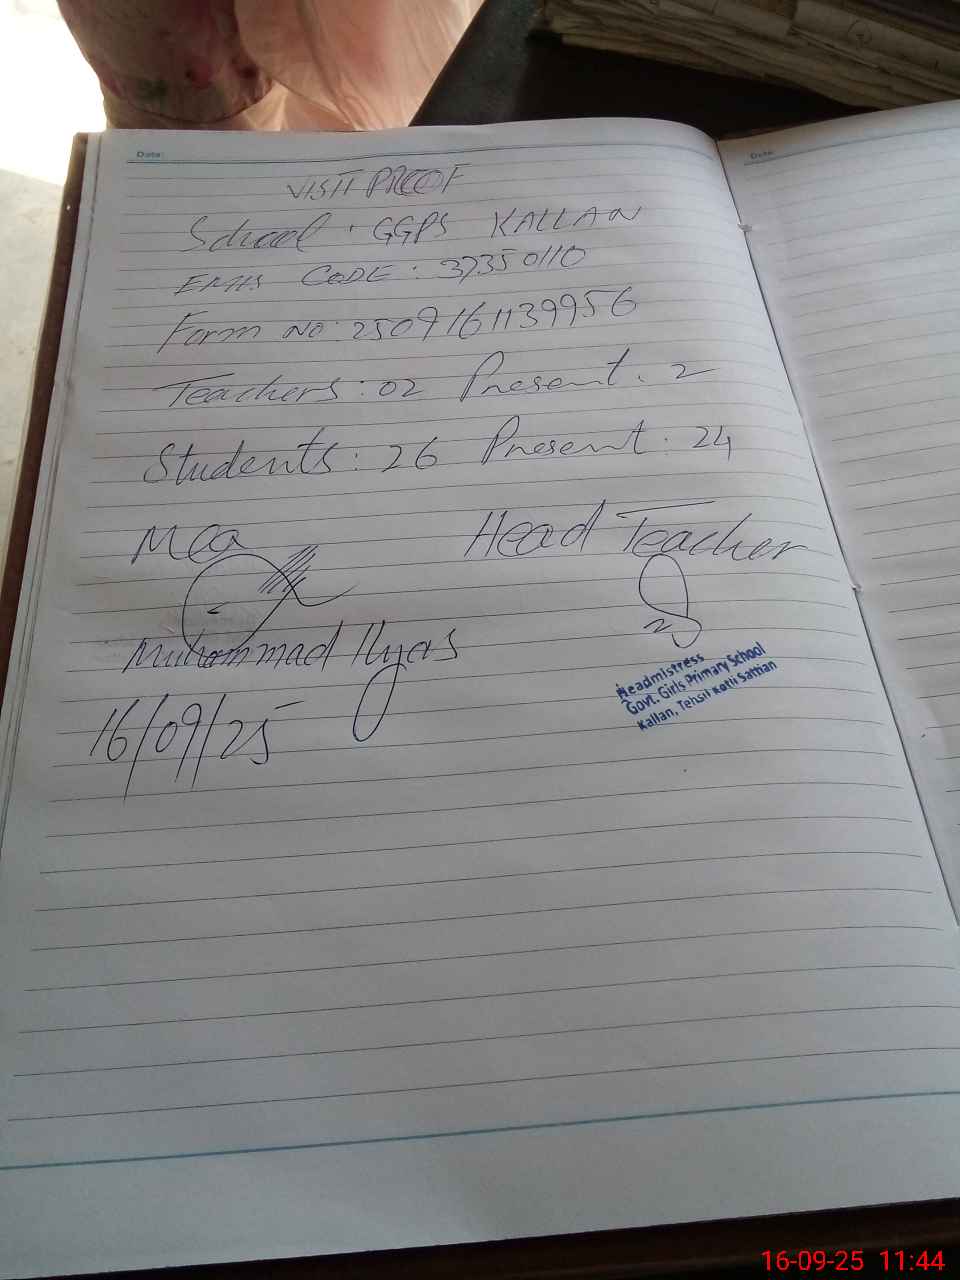 Date:
VISIT PROOF
School : GGPS KALLAN
EMIS CODE : 37350110
Form no: 2509161139956
Teachers : 02 Present : 2
Students : 26 Present : 24
MEA Head Teacher
Muhammad Ilyas
Headmistress
Govt. Girls Primary School
Kallan, Tehsil Kotli Sattian
16/09/25
Date:
16-09-25 11:44